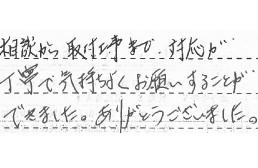 相談から取付工事まで、対応が
丁寧で気持ちよくお願いすることが
できました。ありがとうございました。